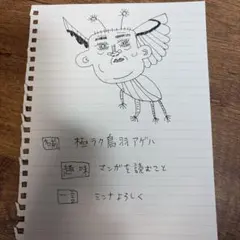 名前 極ラク鳥羽アゲハ
趣味 マンガを読むこと
一言 ミンナよろしく